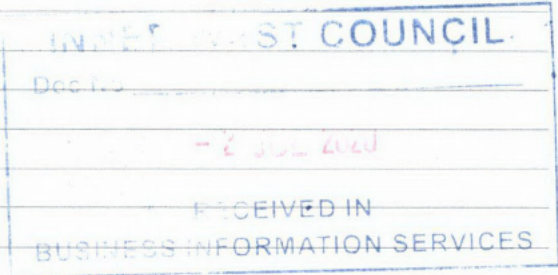 INNER WEST COUNCIL
Doc No
- 2 JUL 2020
RECEIVED IN
BUSINESS INFORMATION SERVICES